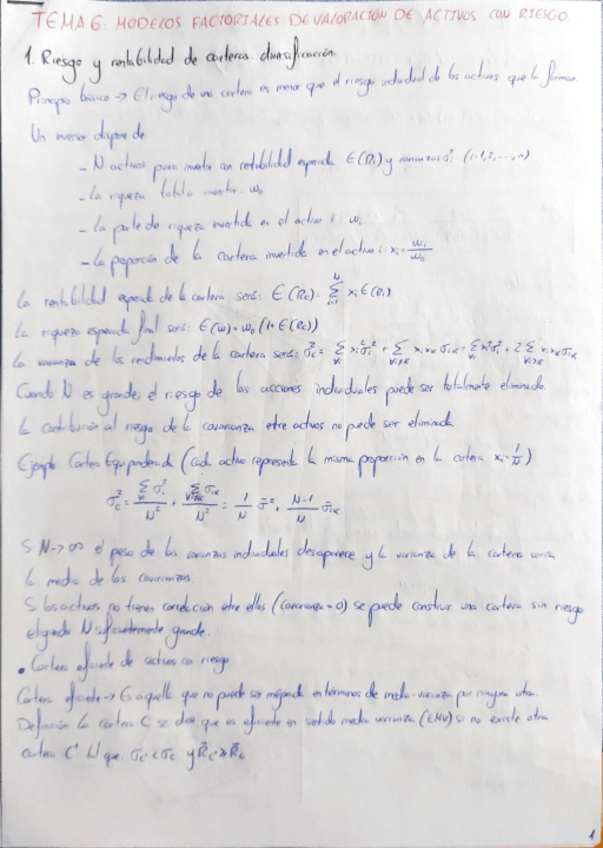 TEMA 6. MODELOS FACTORIALES DE VALORACIÓN DE ACTIVOS CON RIESGO.
1. Riesgo y rentabilidad de carteras. diversificación.
Principio básico → El riesgo de una cartera es menor que el riesgo individual de los activos que la forman.
Un inversor dispone de
- N activos para invertir con rentabilidad esperada E(Ri) y varianzas σi² (i=1,2,...,n)
- La riqueza total a invertir: w₀
- La parte de riqueza invertida en el activo i: wi
- La proporción de la cartera invertida en el activo i: xi = wi/w₀
La rentabilidad esperada de la cartera será: E(Rc) = Σ xi E(Ri)
La riqueza esperada final será: E(w) = w₀ (1+E(Rc))
La varianza de los rendimientos de la cartera será: σc² = Σ xi²σi² + Σ xi xk σik = Σ xi²σi² + 2 Σ xi xk σik
Cuando N es grande, el riesgo de las acciones individuales puede ser totalmente eliminado.
La contribución al riesgo de la covarianza entre activos no puede ser eliminada
Ejemplo Cartera Equiponderada (cada activo representa la misma proporción en la cartera xi = 1/N)
σc² = Σσi²/N² + Σσik/N² = 1/N σ̄² + N-1/N σ̄ik
Si N→∞ el peso de las varianzas individuales desaparece y la varianza de la cartera sería
la media de las covarianzas.
Si los activos no tienen correlación entre ellos (covarianza = 0) se puede construir una cartera sin riesgo
eligiendo N suficientemente grande.
• Cartera eficiente de activos con riesgo
Cartera eficiente → Es aquella que no puede ser mejorada en términos de media-varianza por ninguna otra.
Definición la cartera C se dice que es eficiente en sentido media varianza (EMV) si no existe otra
cartera C' tal que: σc' < σc y R̄c' ≥ R̄c
1